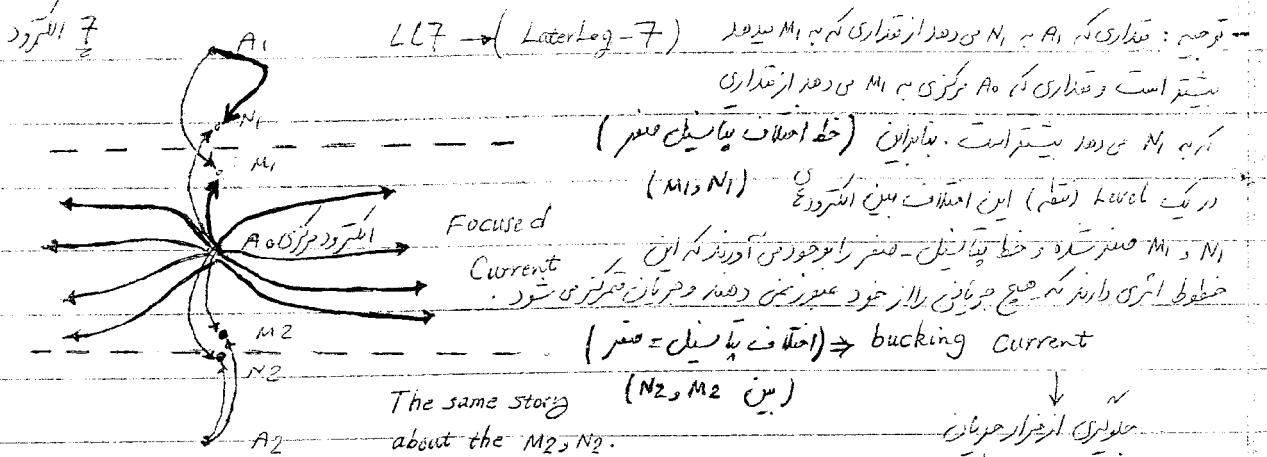 7 الکترود
LL7 → (LaterLog-7)
- توجیه: مقداری که A1 به N1 می دهد از مقداری که به M1 میدهد
بیشتر است و مقداری که A0 مرکزی به M1 می دهد از مقداری
که به N1 می دهد بیشتر است. بنابراین (خط اختلاف پتانسیل صفر)
(M1 و N1)
در یک Level (نقطه) این اختلاف بین الکترودهای
N1 و M1 صفر شده و خط پتانسیل - صفر را بوجود می آورند که این
خطوط اثری دارند که هیچ جریانی را از خود عبور نمی دهند و جریان متمرکز می شود.
(اختلاف پتانسیل = صفر) ⇒ bucking current
(بین M2 و N2)
↓
جلوگیری از فرار جریان
A1
N1
M1
A0 الکترود مرکزی
Focused
Current
M2
N2
A2
The same story
about the M2 و N2.